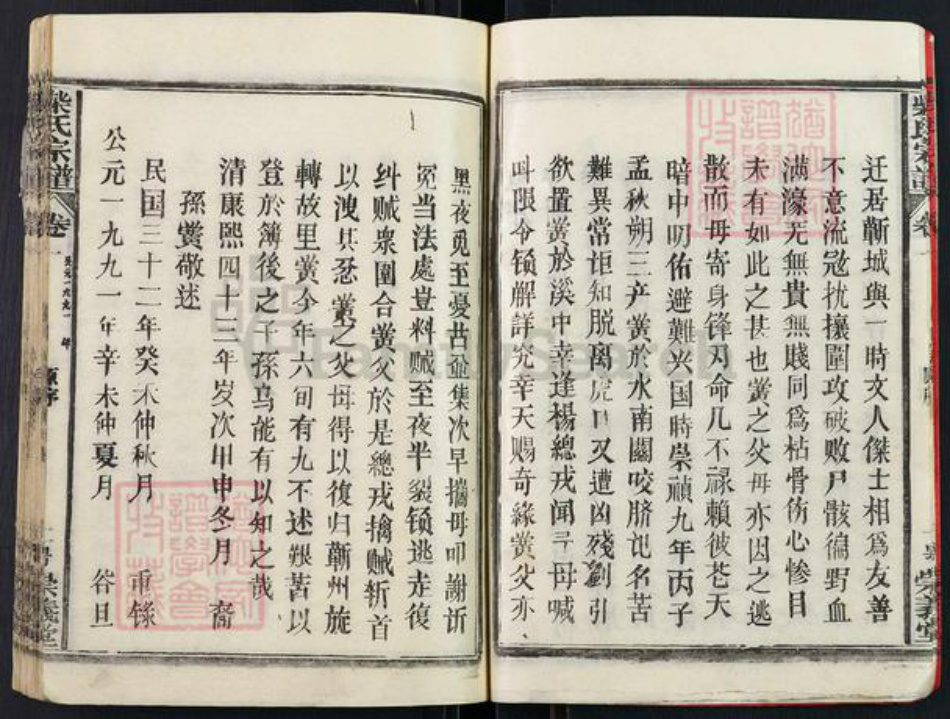 迁居蘄城與一時文人傑士相爲友善
不意流冦扰攘圍攻破败尸骸徧野血
满濠无無貴無賤同爲枯骨伤心惨目
未有如此之甚也黉之父毋亦因之逃
散而毋寄身锋刃命几不禄賴彼苍天
暗中明佑避難兴国時崇禎九年丙子
孟秋朔三产黉於水南關咬脐记名苦
難異常讵知脱离虎口又遭凶殘劉引
欲置黉於溪中幸逢楊總戎闻毋喊
叫限令锁解詳究幸天赐奇緣黉父亦
黑夜觅至憂古並集次早攜毋叩謝訴
冤当法處豈料贼至夜半裂锁逃走復
纠贼衆圍合黉父於是總戎擒贼斩首
以洩其忿黉之父毋得以復归蘄州旋
轉故里黉今年六旬有九不述艰苦以
登於簿後之子孫乌能有以知之哉
清康熙四十三年岁次甲申冬月 裔
孫黉敬述
民国三十二年癸未仲秋月 重錄
公元一九九一年辛未仲夏月 谷旦
柴氏宗譜 卷一
源序
榮義堂
柴氏宗譜 卷一
榮義堂